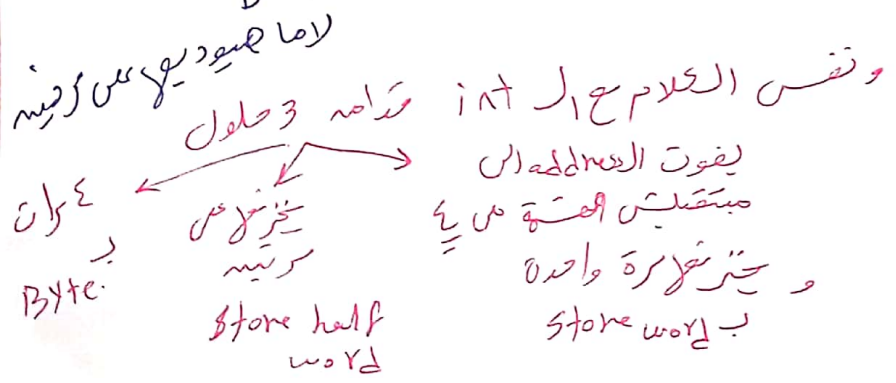 لاما هيوديها على مرتين
ونفس الكلام مع ال int قدامه 3 حلول
يفوت ال address الى
مبتقبلش القسمة على ٤
و يخزنها مرة واحدة
ب store word
يخزنها على
مرتين
store half
word
٤ مرات
ب
Byte.